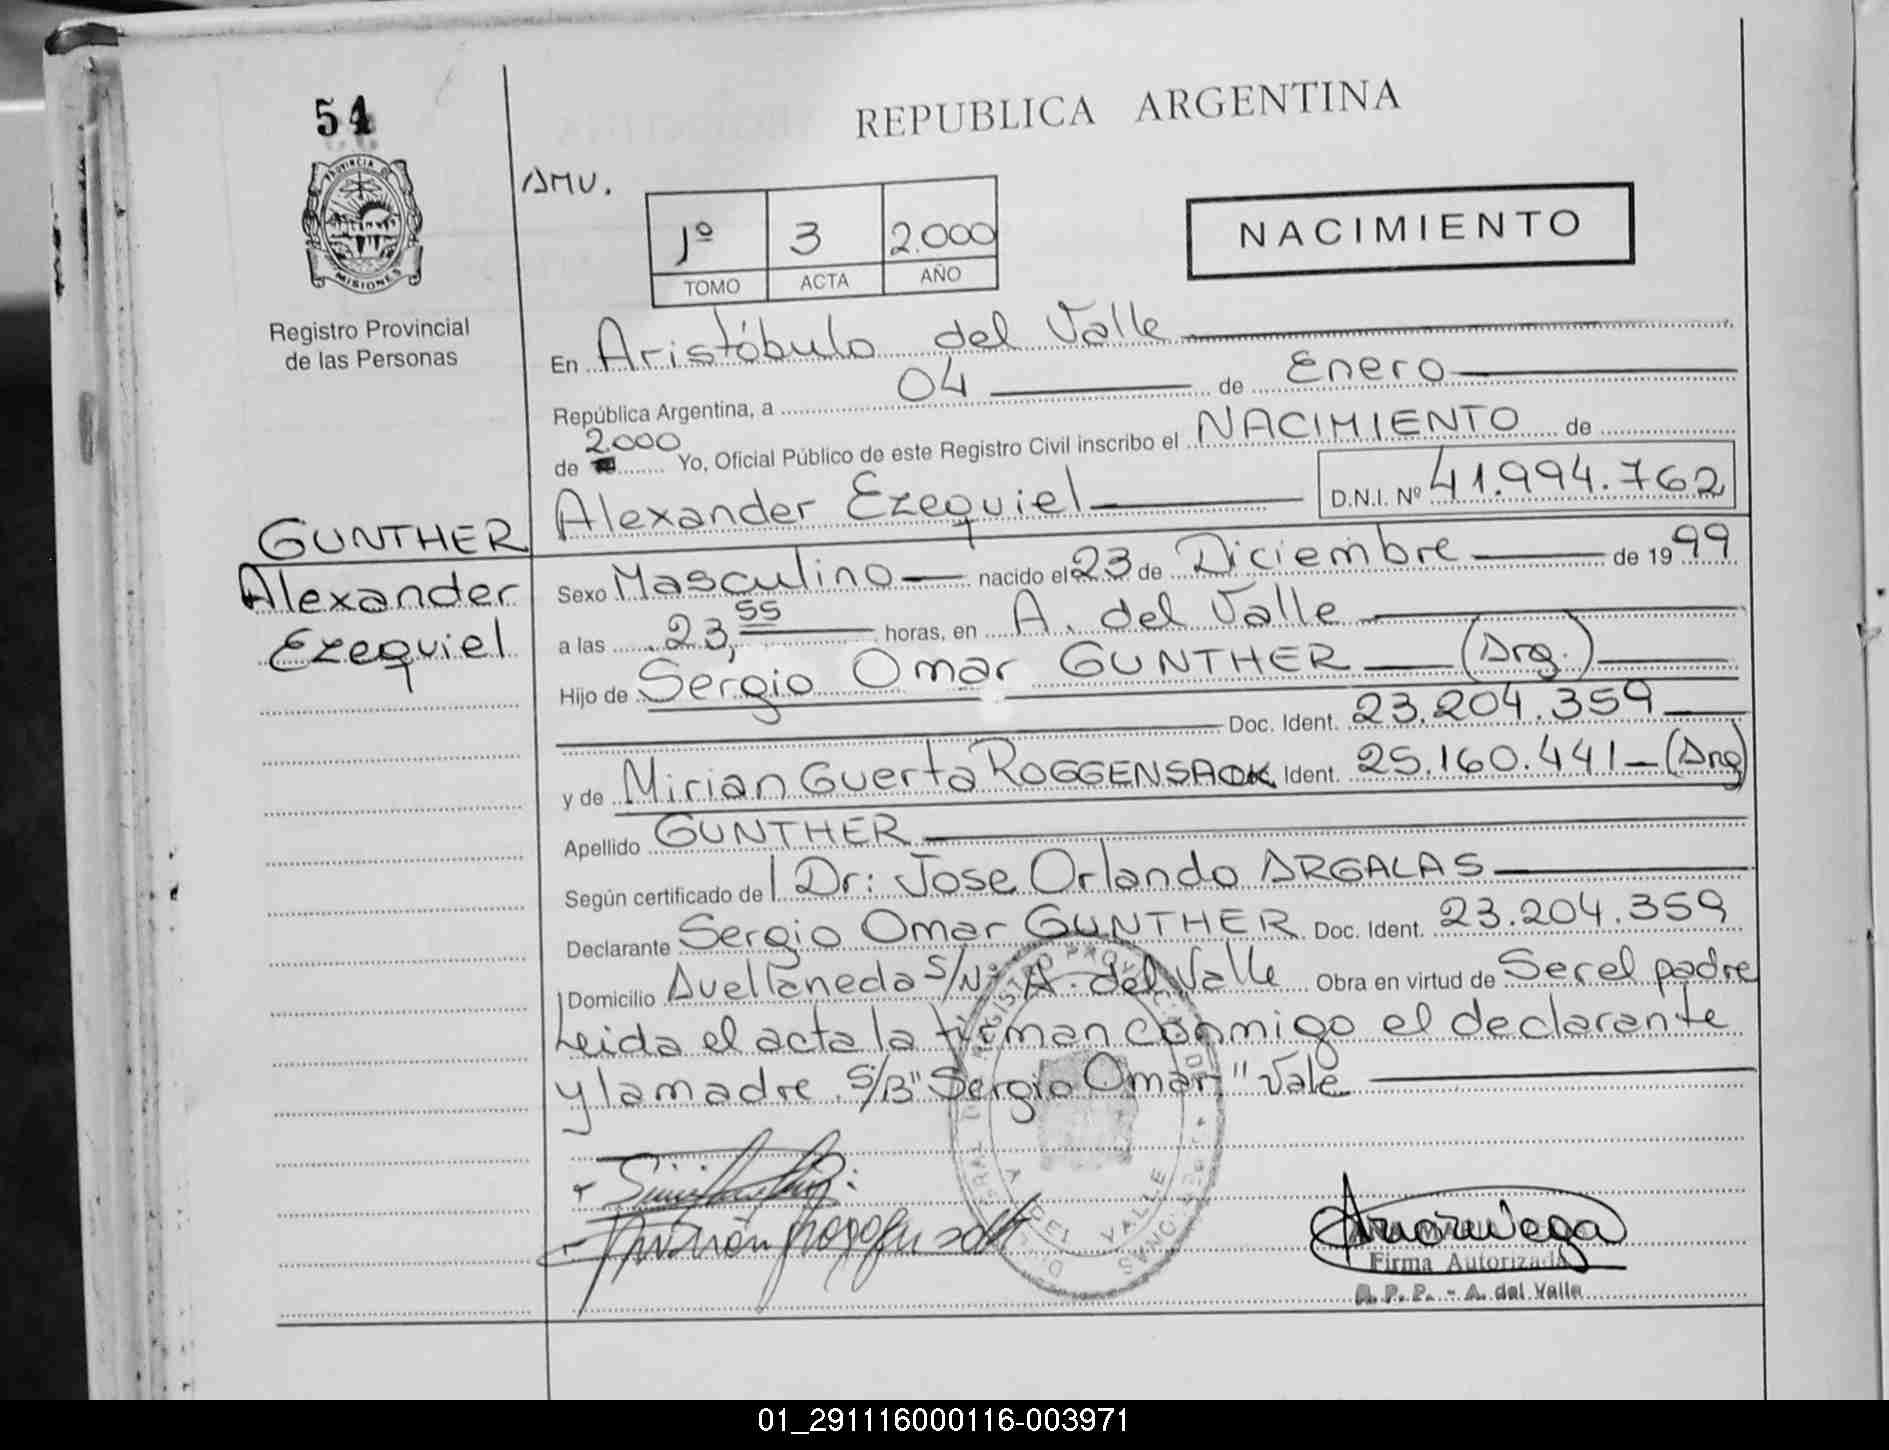 54
REPUBLICA ARGENTINA
PROVINCIA DE
MISIONES
Registro Provincial
de las Personas
AMV.
1º 3 2.000
TOMO ACTA AÑO
NACIMIENTO
En Aristóbulo del Valle
República Argentina, a 04 de Enero
de 2.000 Yo, Oficial Público de este Registro Civil inscribo el NACIMIENTO de
Alexander Ezequiel D.N.I. Nº 41.994.762
GUNTHER
Alexander
Ezequiel
Sexo Masculino nacido el 23 de Diciembre de 1999
a las 23,55 horas, en A. del Valle
Hijo de Sergio Omar GUNTHER (Arg.)
Doc. Ident. 23.204.359
y de Mirian Guerta ROGGENSACK Ident. 25.160.441 (Arg)
Apellido GUNTHER
Según certificado del Dr: Jose Orlando ARGALAS
Declarante Sergio Omar GUNTHER Doc. Ident. 23.204.359
Domicilio Avellaneda S/Nº A. del Valle Obra en virtud de Ser el padre
Leida el acta la firman conmigo el declarante
y la madre. S/B "Sergio Omar" Vale
A. DEL VALLE
Firma Autorizada
R. P. P. - A. del Valle
01_291116000116-003971